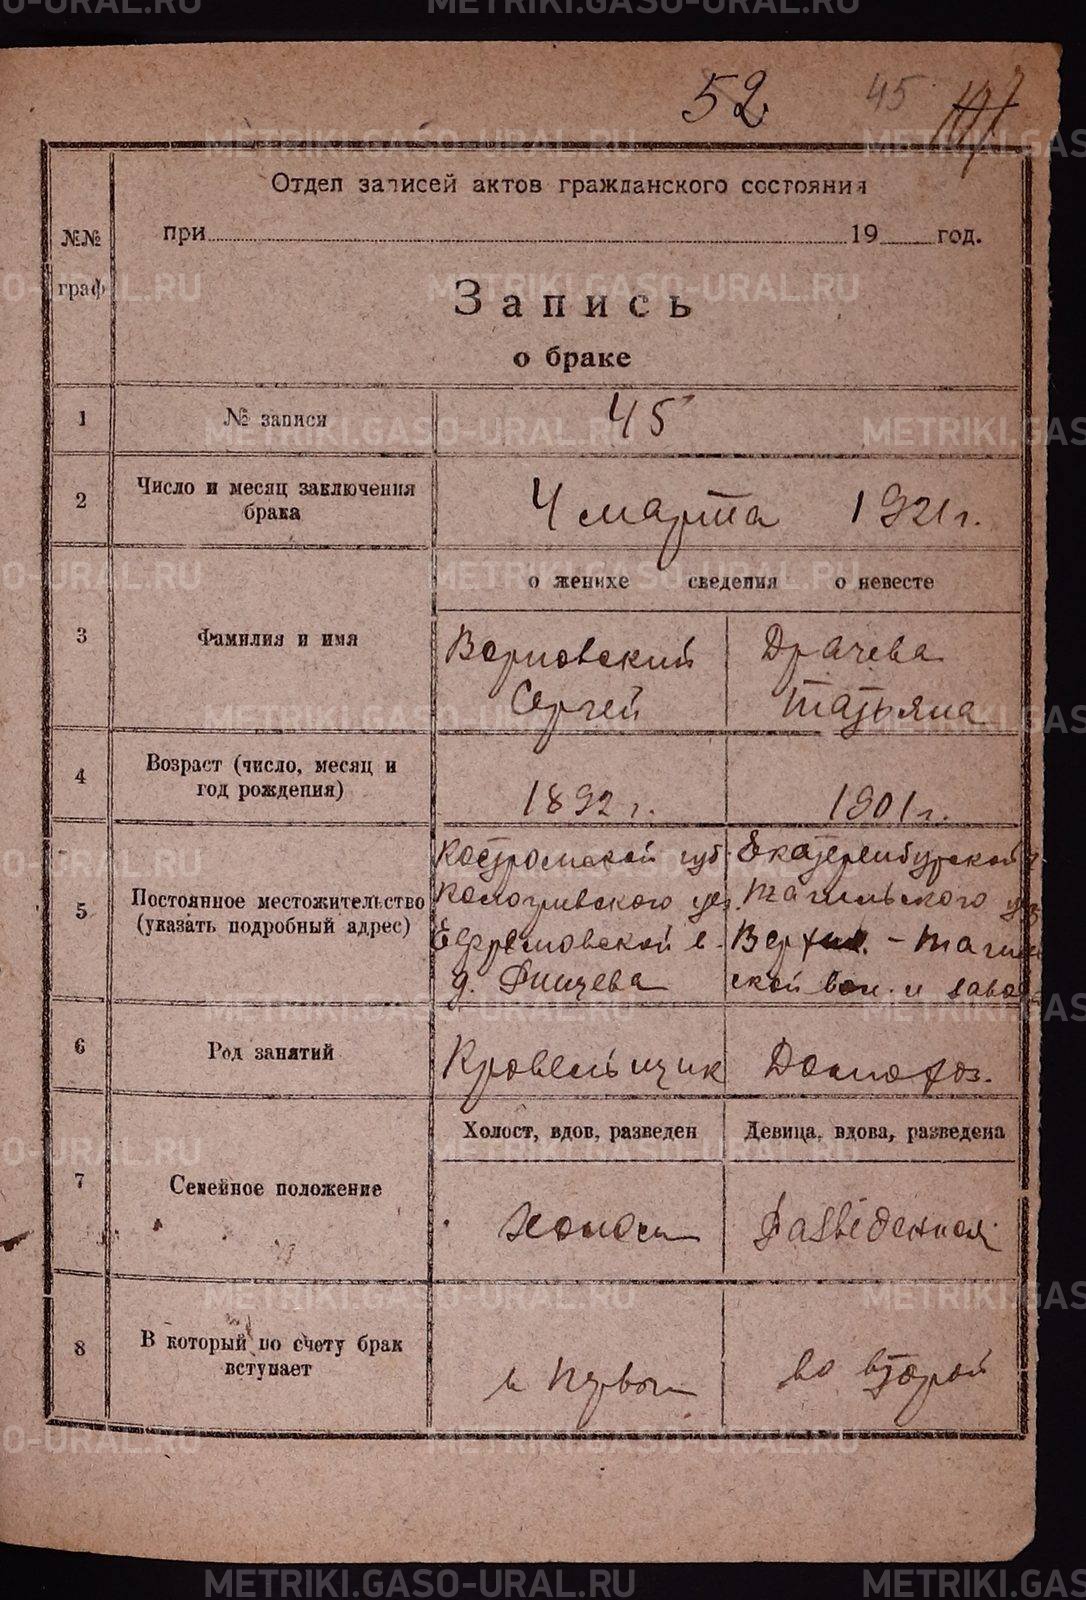 52
45
Отдел записей актов гражданского состояния
№№ граф
при 19 год.
Запись
о браке
1 № записи 45
2 Число и месяц заключения брака 4 марта 1921 г.
о женихе сведения о невесте
3 Фамилия и имя
Драчева
Сергей Татьяна
4 Возраст (число, месяц и год рождения) 1892 г. 1901 г.
5 Постоянное местожительство (указать подробный адрес)
Костромской губ. Екатеринбургской г
Кологривского уез. Тагильского у
Ефремовской в. Верхне - Тагиль
д. ской вол. и завода
6 Род занятий Кровельщик Домохоз.
Холост, вдов, разведен Девица, вдова, разведена
7 Семейное положение Холост Разведенная
8 В который по счету брак вступает
в первый во второй
METRIKI.GASO-URAL.RU